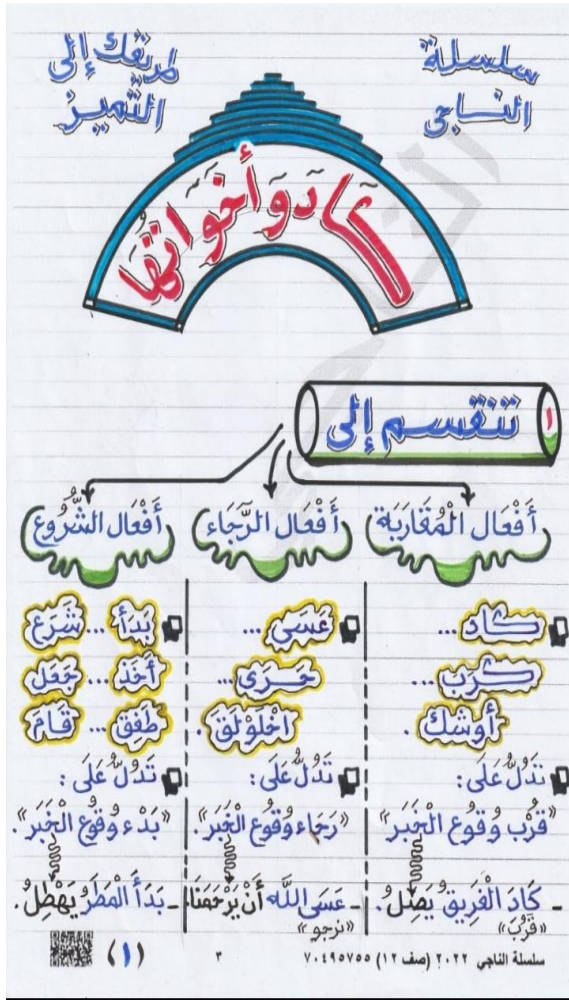 سلسلة
الناجى
طريقك إلى
التميز
كاد و أخواتها
١ تنقسم إلى
أفعال المُقَارَبَة
أفعال الرَّجَاء
أفعال الشُّرُوع
كاد ...
كَرَب ...
أوشك .
تدُلُّ عَلَى:
«قُرْب وُقُوع الْخَبَر»
- كَادَ الْفَرِيقُ يَصِلُ.
«قَرُبَ»
عَسَى ...
حَرَى ...
اخْلَوْلَقَ .
تَدُلُّ عَلَى:
«رَجَاء وُقُوع الْخَبَر».
- عَسَى اللَّه أَنْ يَرْحَمَنَا.
«نرجو»
بَدَأَ ... شَرَعَ
أَخَذَ ... جَعَلَ
طَفِقَ ... قَامَ
تَدُلُّ عَلَى:
«بَدْء وُقُوع الْخَبَر».
- بَدَأَ الْمَطَرُ يَهْطِلُ.
سلسلة الناجي ٢٠٢٢ (صف ١٢) ٧٠٤٩٥٧٥٥
٣
(١)